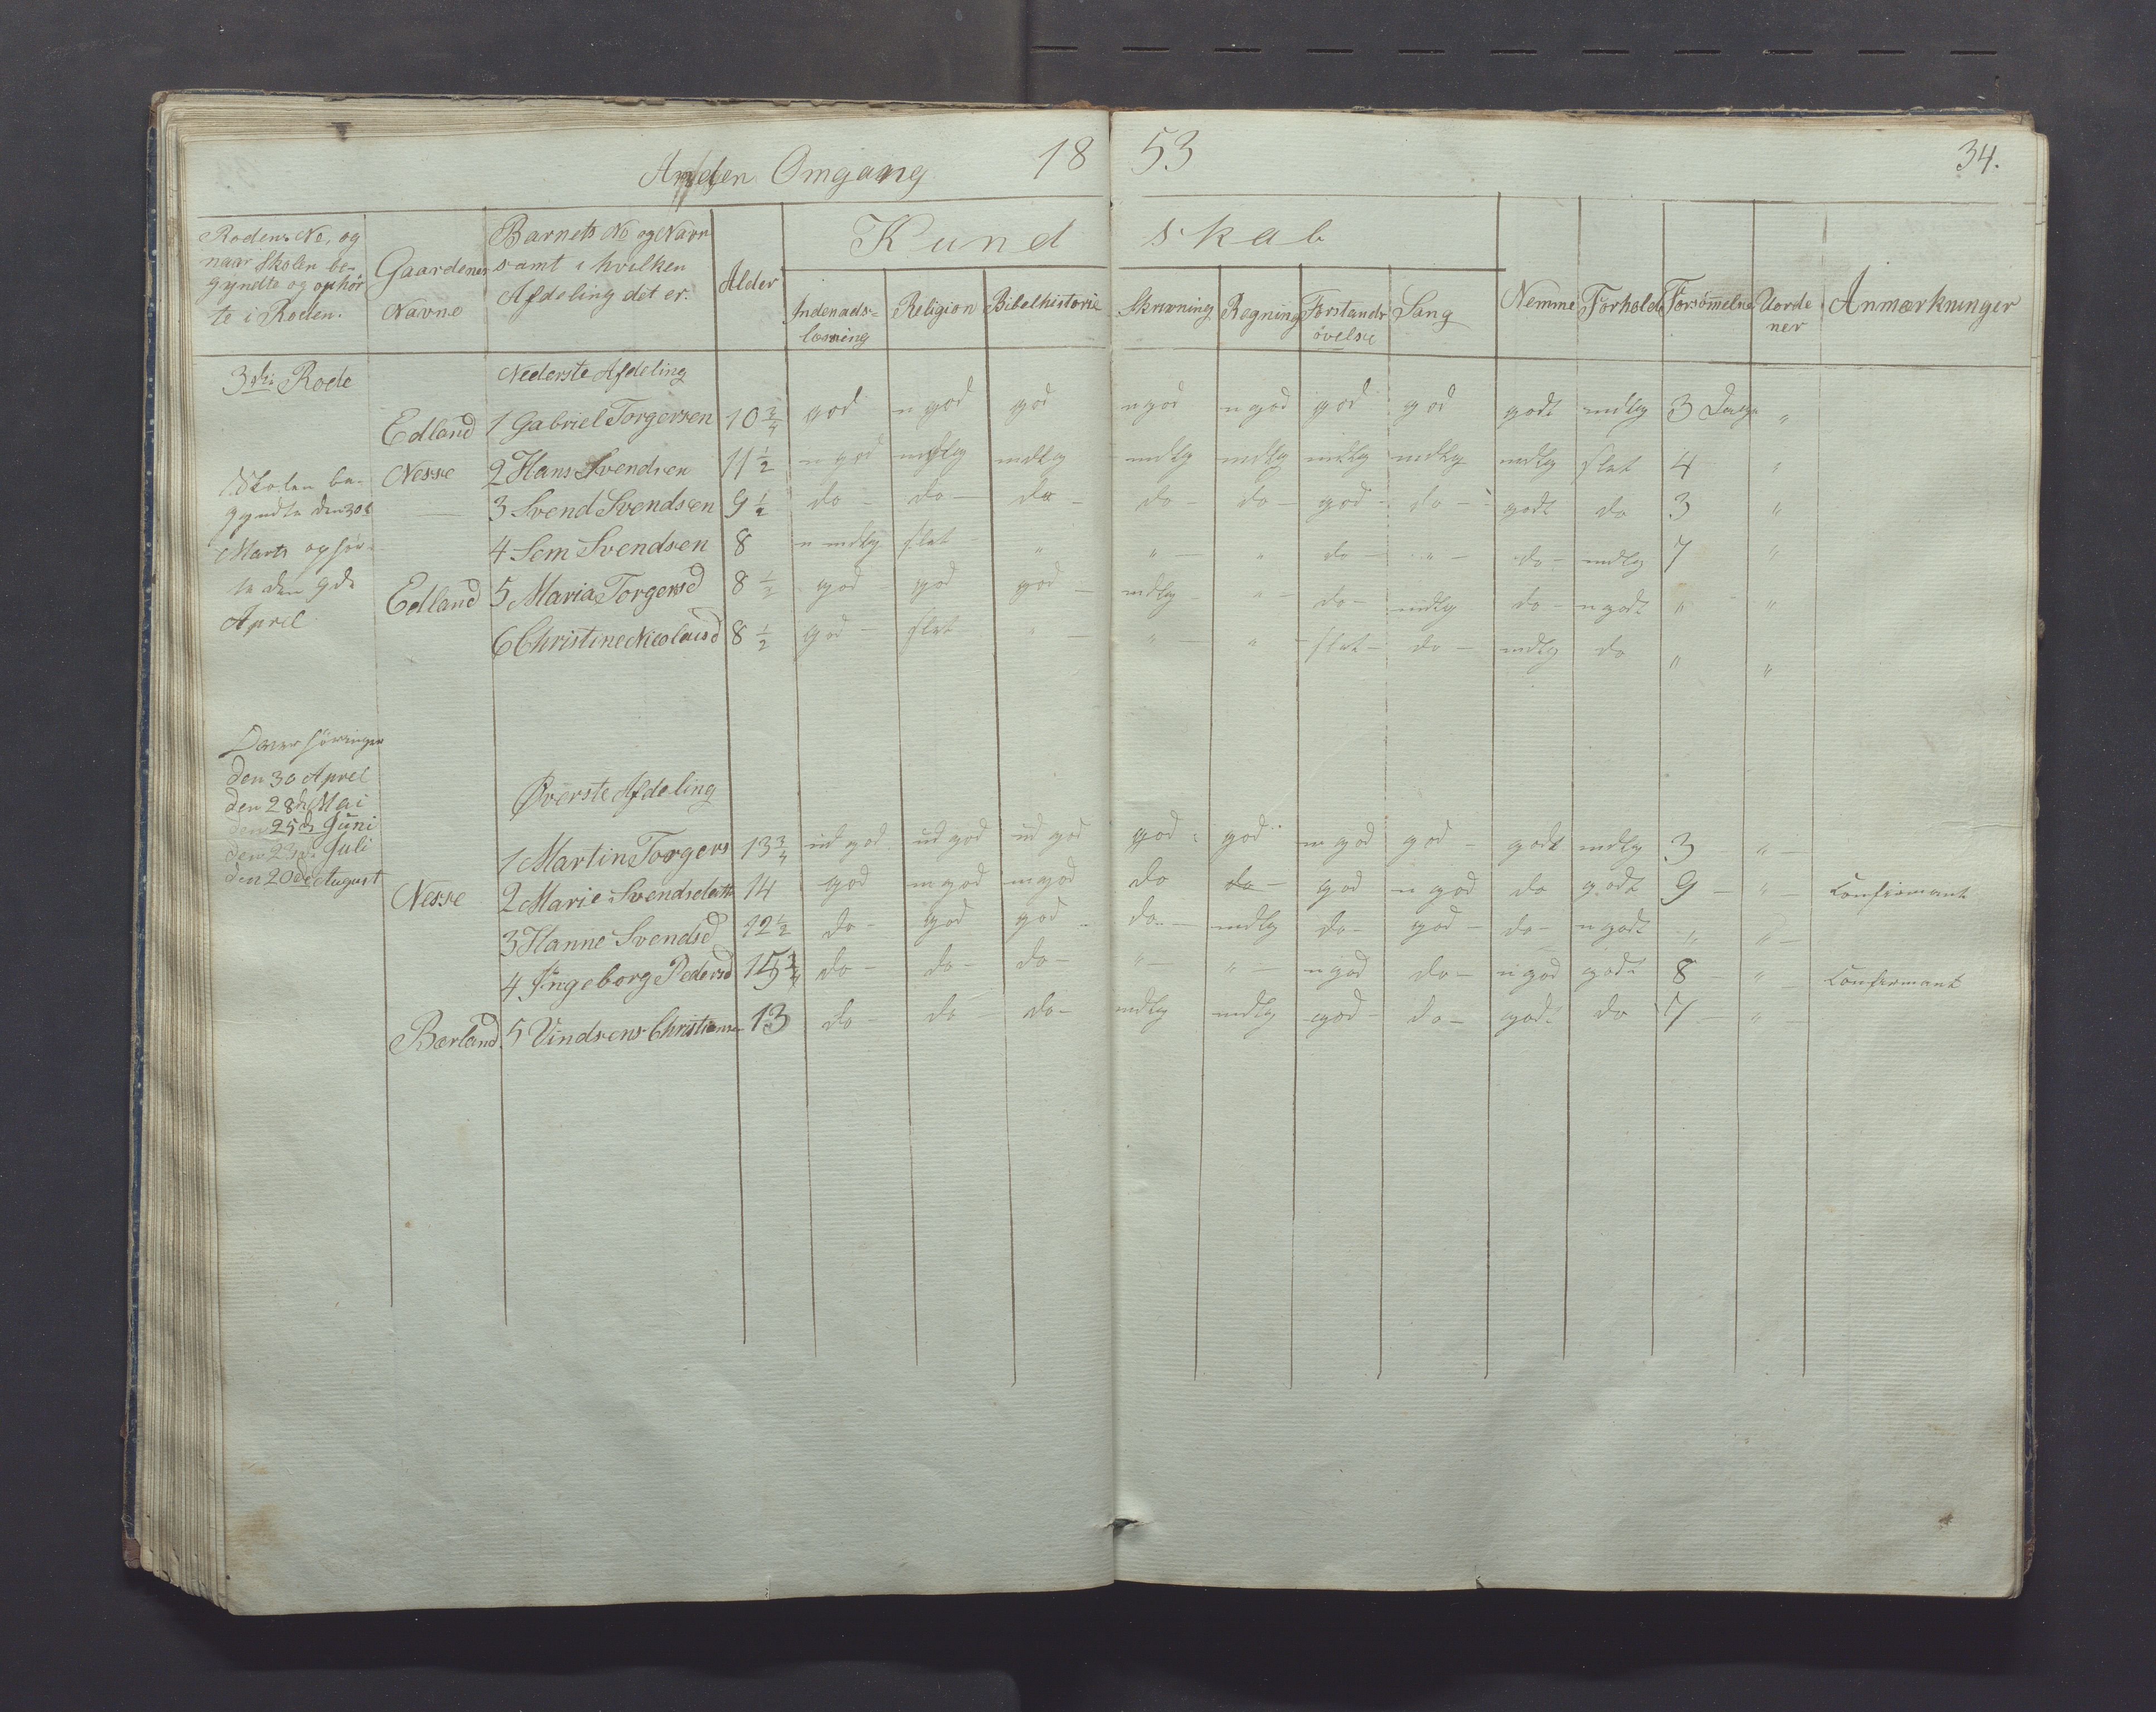 Anden Omgang 18 53 34.
Rodens No, og
naar Skolen be-
gyndte og ophör
te i Roden.
Gaardenes
Navne
Barnets No og Navn
samt i hvilken
Afdeling det er.
Alder
Kund skab
Indenads-
læsning
Religion
Bibelhistorie
Skrivning
Regning
Forstands
övelse
Sang
Nemme
Forhold
Forsömmelse
Uorde
ner
Anmærkninger
3die Rode
Nederste Afdeling
Edland 1 Gabriel Torgersen 10 3/4 god n god god n god n god god god godt mdlg 3 Dage "
Nesse 2 Hans Svendsen 11 1/2 n god mdlg mdlg mdlg mdlg mdlg mdlg mdlg slet 4 "
— 3 Svend Svendsen 9 1/2 do - do - do - do do - god - do - godt do 3 "
4 Sem Svendsen 8 n mdlg slet - " " - " do - " - do - mdlg 7 "
Edland 5 Maria Torgersd 8 1/2 god - god god - mdlg - " - do - mdlg do - n godt " "
6 Christine Nicolaisd 8 1/2 god - slet - " - " - slet - do - mdlg do " "
Skolen be-
gyndte den 30te
Marts ophör-
te den 9de
April
den 30 April
den 28de Mai
den 25de Juni
den 23de Juli
den 20de August
Øverste Afdeling
1 Martin Torgers 13 3/4 ud god ud god ud god god - god m god god - godt mdlg 3 " -
Nesse 2 Marie Svendsdatt 14 god m god m god do do - god n god do godt 9 - " - Confirmant
3 Hanne Svendsd 12 1/2 do - god god - do - mdlg do - god - do - n godt " " -
4 Ingeborg Pedersd 15 3/4 do - do - do - " - " - n god do - n god godt 8 " - Confirmant
Bærland 5 Vindsens Christiansen 13 do do - do - mdlg mdlg god - do - godt do 7 " -